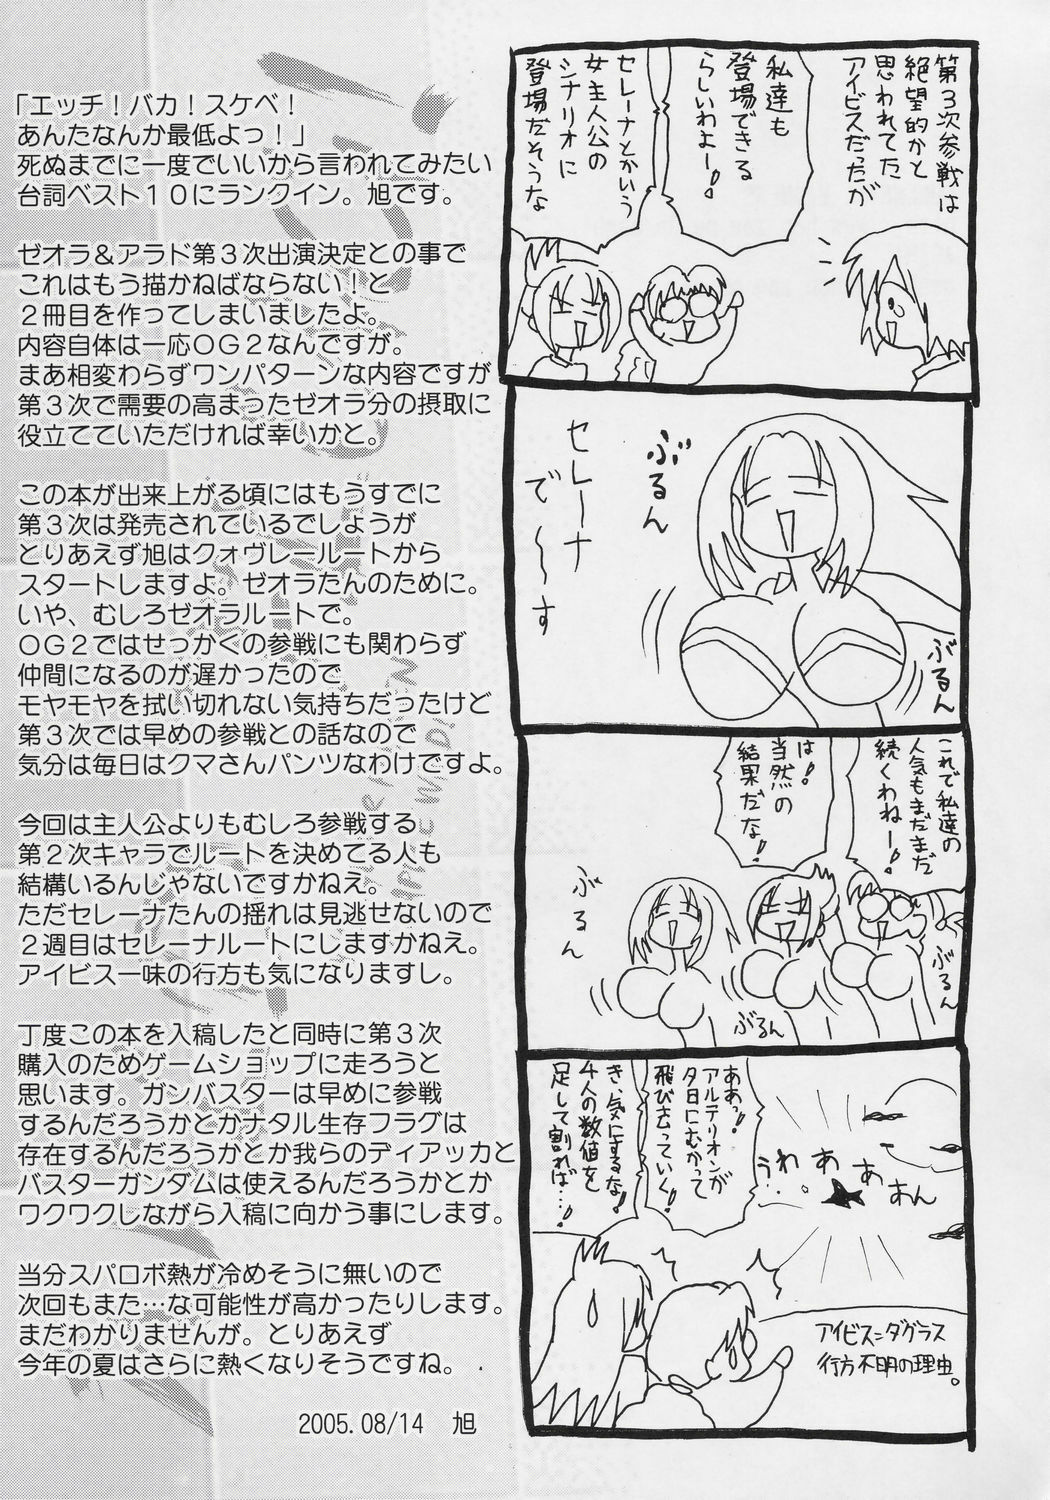 「エッチ！バカ！スケベ！
あんたなんか最低よっ！」
死ぬまでに一度でいいから言われてみたい
台詞ベスト１０にランクイン。旭です。
ゼオラ＆アラド第３次出演決定との事で
これはもう描かねばならない！と
２冊目を作ってしまいましたよ。
内容自体は一応ＯＧ２なんですが。
まあ相変わらずワンパターンな内容ですが
第３次で需要の高まったゼオラ分の摂取に
役立てていただければ幸いかと。
この本が出来上がる頃にはもうすでに
第３次は発売されているでしょうが
とりあえず旭はクォヴレールートから
スタートしますよ。ゼオラたんのために。
いや、むしろゼオラルートで。
ＯＧ２ではせっかくの参戦にも関わらず
仲間になるのが遅かったので
モヤモヤを拭い切れない気持ちだったけど
第３次では早めの参戦との話なので
気分は毎日はクマさんパンツなわけですよ。
今回は主人公よりもむしろ参戦する
第２次キャラでルートを決めてる人も
結構いるんじゃないですかねえ。
ただセレーナたんの揺れは見逃せないので
２週目はセレーナルートにしますかねえ。
アイビス一味の行方も気になりますし。
丁度この本を入稿したと同時に第３次
購入のためゲームショップに走ろうと
思います。ガンバスターは早めに参戦
するんだろうかとかナタル生存フラグは
存在するんだろうかとか我らのディアッカと
バスターガンダムは使えるんだろうかとか
ワクワクしながら入稿に向かう事にします。
当分スパロボ熱が冷めそうに無いので
次回もまた…な可能性が高かったりします。
まだわかりませんが。とりあえず
今年の夏はさらに熱くなりそうですね。
2005.08/14　旭
第３次参戦は
絶望的かと
思われてた
アイビスだったが
私達も
登場できる
らしいわよー！
セレーナとかいう
女主人公の
シナリオに
登場だそうな
ぶるん
セレーナ
で〜〜す
ぶるん
これで私達の
人気もまだまだ
続くわねー！
は！
当然の
結果だな！
ぶるん
ぶるん
ぶるん
ああっ！
アルテリオンが
夕日にむかって
飛び去っていく！
き、気にするな！
４人の数値を
足して割れば…！
うわぁあぁん
アイビス＝ダグラス
行方不明の理由。